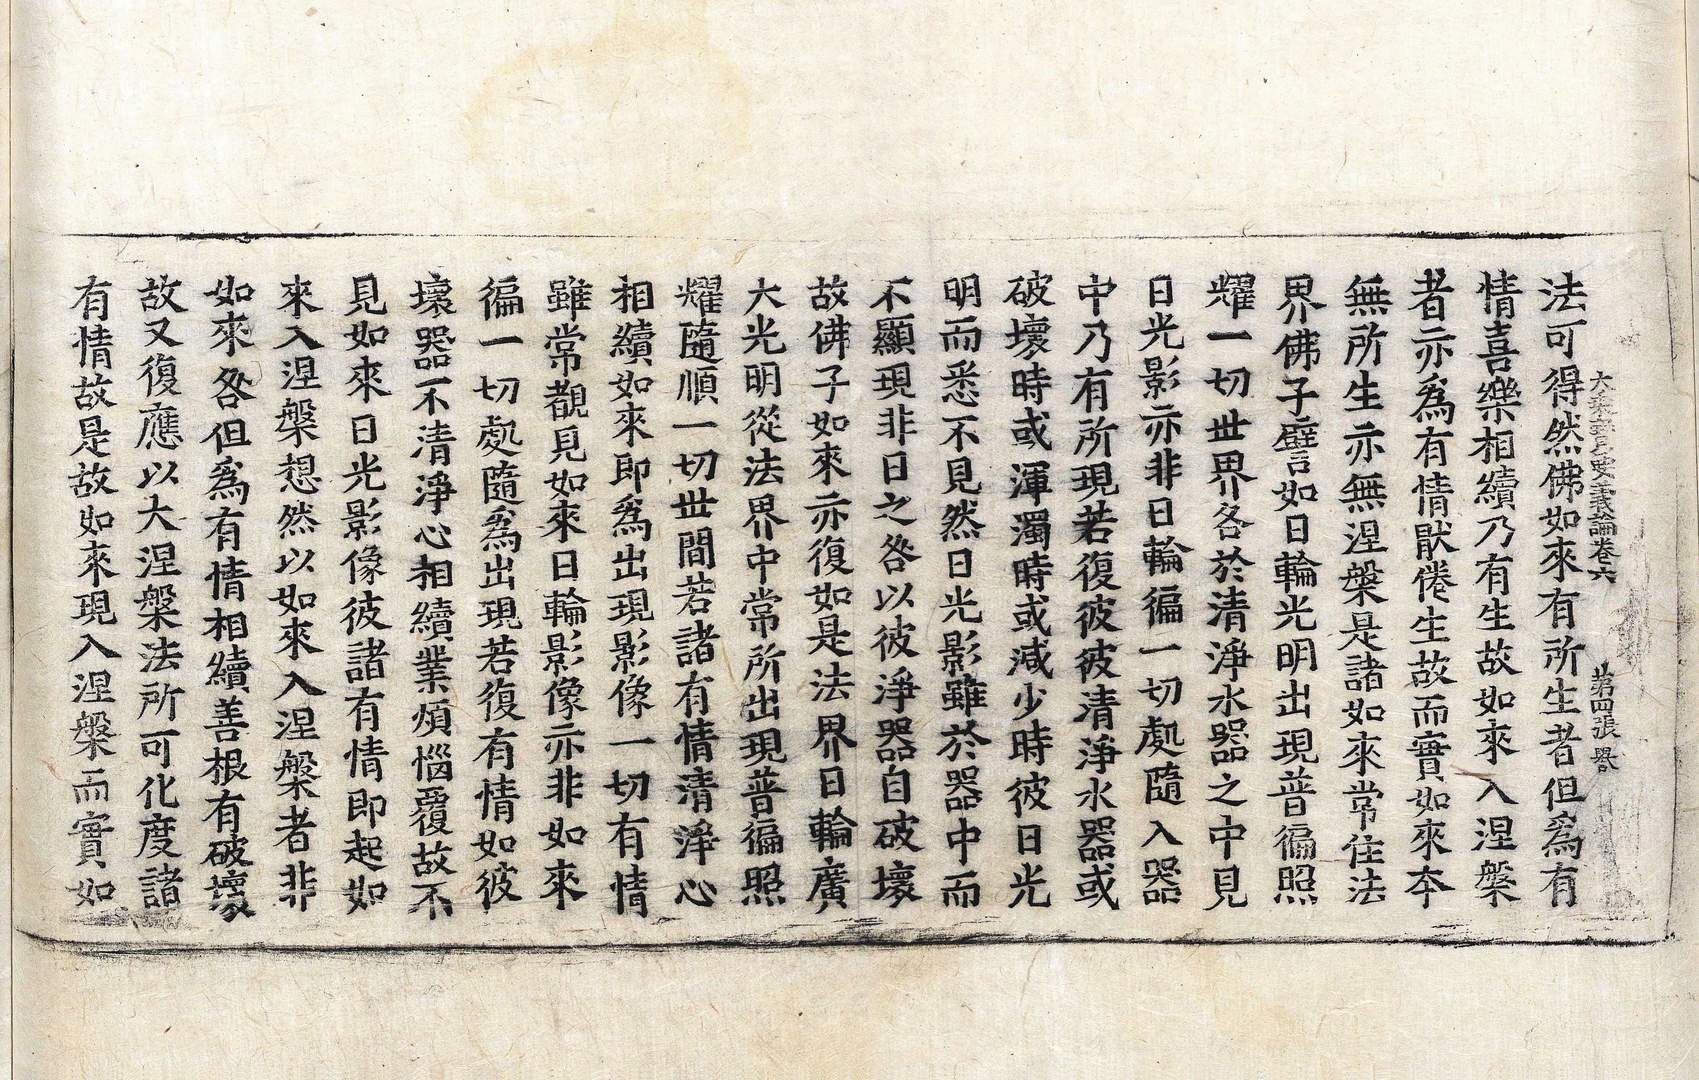 大乘寶要義論卷六 第四張 譽
法可得然佛如來有所生者但爲有
情喜樂相續乃有生故如來入涅槃
者亦爲有情猒倦生故而實如來本
無所生亦無涅槃是諸如來常住法
界佛子譬如日輪光明出現普徧照
耀一切世界各於清淨水器之中見
日光影亦非日輪徧一切處隨入器
中乃有所現若復彼彼清淨水器或
破壞時或渾濁時或減少時彼日光
明而悉不見然日光影雖於器中而
不顯現非日之咎以彼淨器自破壞
故佛子如來亦復如是法界日輪廣
大光明從法界中常所出現普徧照
耀隨順一切世間若諸有情清淨心
相續如來即爲出現影像一切有情
雖常覩見如來日輪影像亦非如來
徧一切處隨爲出現若復有情如彼
壞器不清淨心相續業煩惱覆故不
見如來日光影像彼諸有情即起如
來入涅槃想然以如來入涅槃者非
如來咎但爲有情相續善根有破壞
故又復應以大涅槃法所可化度諸
有情故是故如來現入涅槃而實如